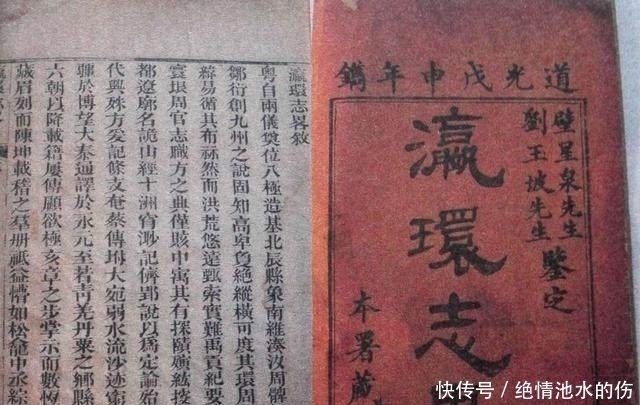 道光戊申年鐫
壁星泉先生
劉玉坡先生
鑒定
瀛環志
本署藏
瀛環志畧敘
粵自兩儀奠位八極造基北辰縣象南維湊汝周髀
鄒衍創九州之說固知高卑負絶縱橫可度其環周
易循其布祘然而洪荒悠遠甄索實難禹貢紀要
寰垠周官志職方之典僅賅中寓其有探賾廣紘按
都遼廓名詭山經十洲窅渺記儕郢說以爲定論始
代興殊方爰記條支奄蔡傳坿大宛弱水流沙迹窮
驛於博望大秦通譯於永元至若靑羌丹粟之鄉縣
六朝以降載籍屢傳顧欲極亥章之步掌示而數恆
藏眉列而陳坤載稽之羣册祇益懵如松龕中丞綜
快传号/绝情池水的伤